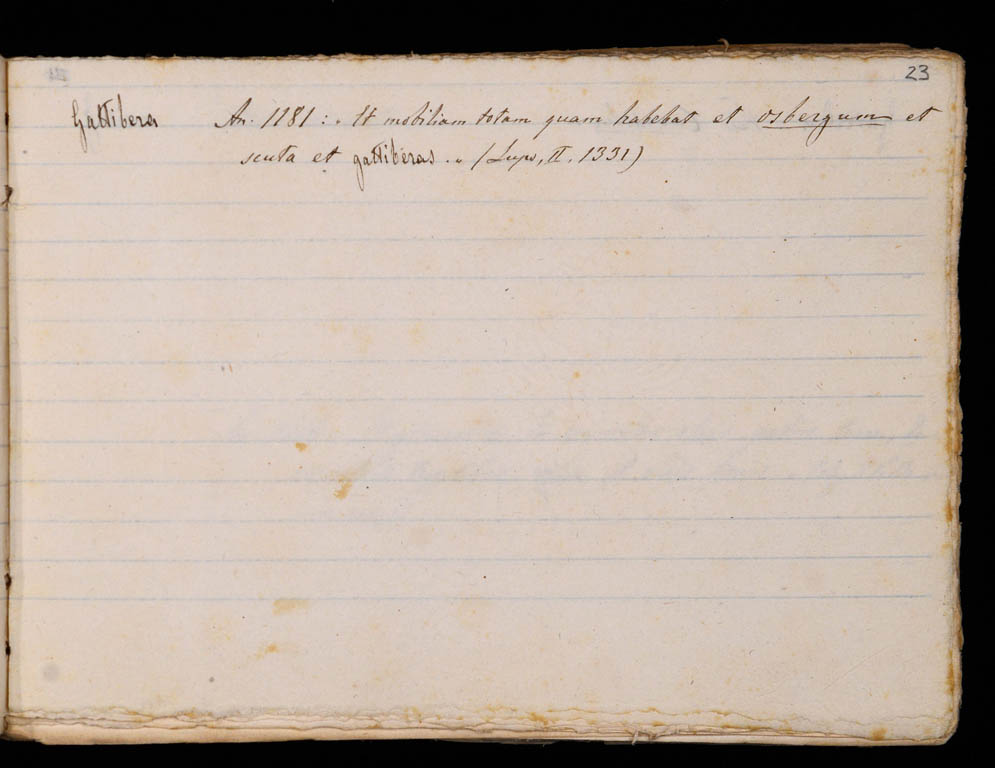 23
Gattibera An. 1181: „ Et mobiliam totam quam habebat et osbergum et
scuta et gattiberas. „ (Lupo, II. 1331)